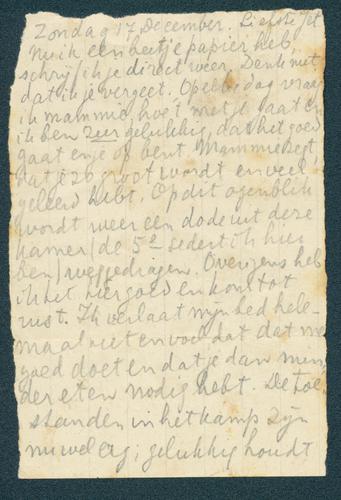 Zondag 17 December. Liefste Jet
Nu ik een beetje papier heb,
schrijf ik je direct weer. Denk niet
dat ik je vergeet. Op elke dag vraag
ik mammie, hoe 't met je gaat en
ik ben zeer gelukkig, dat het goed
gaat en je op bent. Mammie zegt,
dat je zo groot wordt en veel
geleerd hebt. Op dit ogenblik
wordt weer een dode uit deze
kamer (de 5e sedert ik hier
ben) weggedragen. Overigens heb
ik het hier goed en kom tot
rust. Ik verlaat mijn bed hele-
maal niet en voel dat dat me
goed doet en dat je dan min-
der eten nodig hebt. De toe-
standen in het kamp zijn
nu wel erg; gelukkig houdt